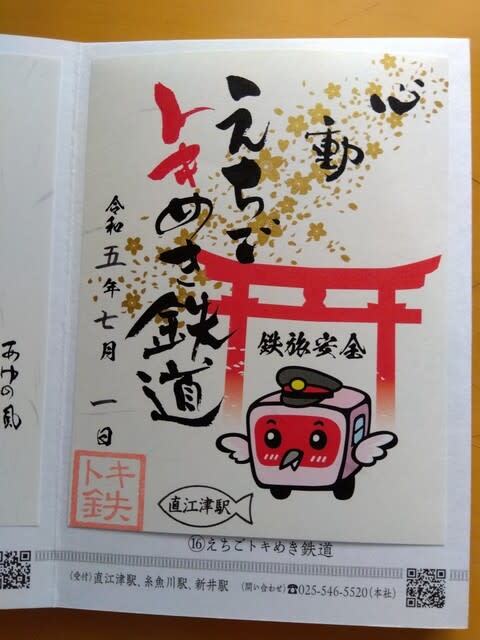 心動
えちご
トキめき鉄道
令和五年七月一日
鉄旅安全
トキ
鉄
直江津駅
あゆの風
⑯えちごトキめき鉄道
(受付)直江津駅、糸魚川駅、新井駅 (問い合わせ)☎025-546-5520(本社)